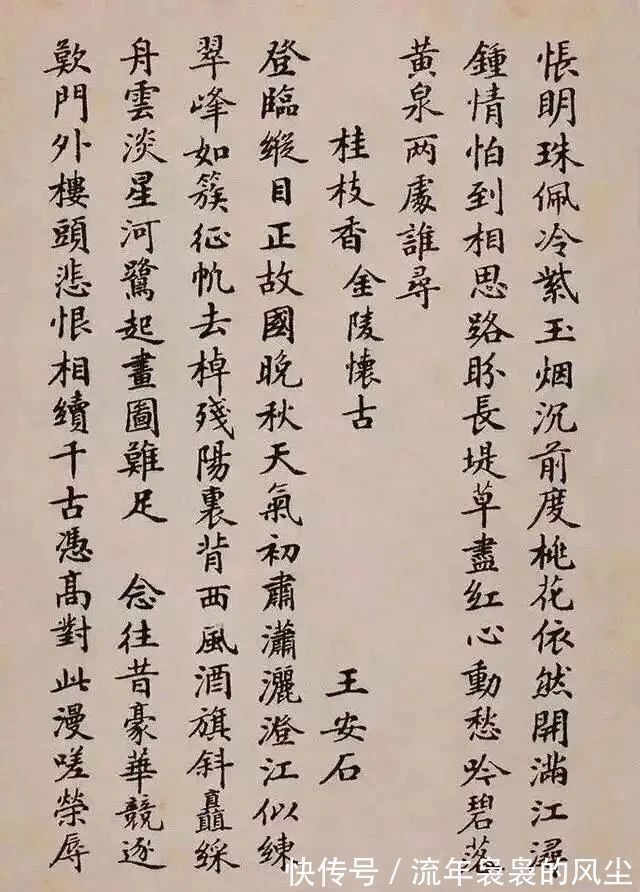 悵明珠佩冷紫玉烟沉前度桃花依然開滿江潯
鍾情怕到相思路盼長堤草盡紅心動愁吟碧落
黃泉两處誰尋
桂枝香 金陵懷古 王安石
登臨縱目正故國晚秋天氣初肅瀟灑澄江似練
翠峰如簇征帆去棹殘陽裏背西風酒旗斜矗綵
舟雲淡星河鷺起畫圖難足 念往昔豪華競逐
歎門外樓頭悲恨相續千古憑高對此漫嗟榮辱
快传号 / 流年袅袅的风尘